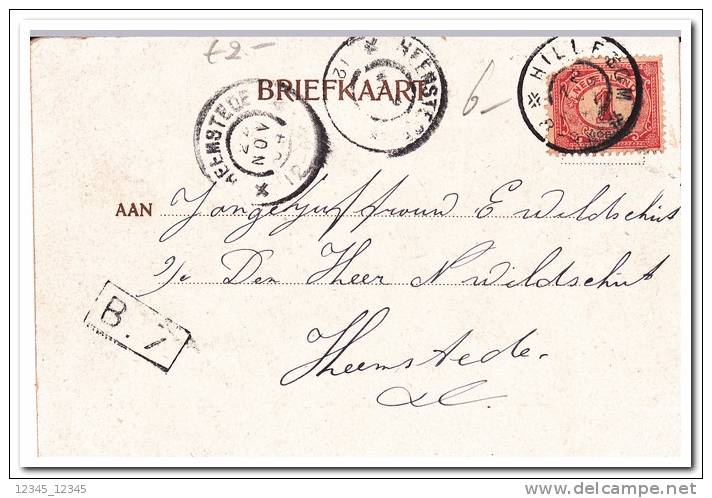 £2-
6-
BRIEFKAART
HEEMSTEDE
NOV
12
HEEMSTEDE
12
HILLEGOM
NEDERLAND
AAN Jongejuffrouw E Wildschut
p/a Den Heer N Wildschut
Heemstede.
B. 7
12345_12345
delcampe.net